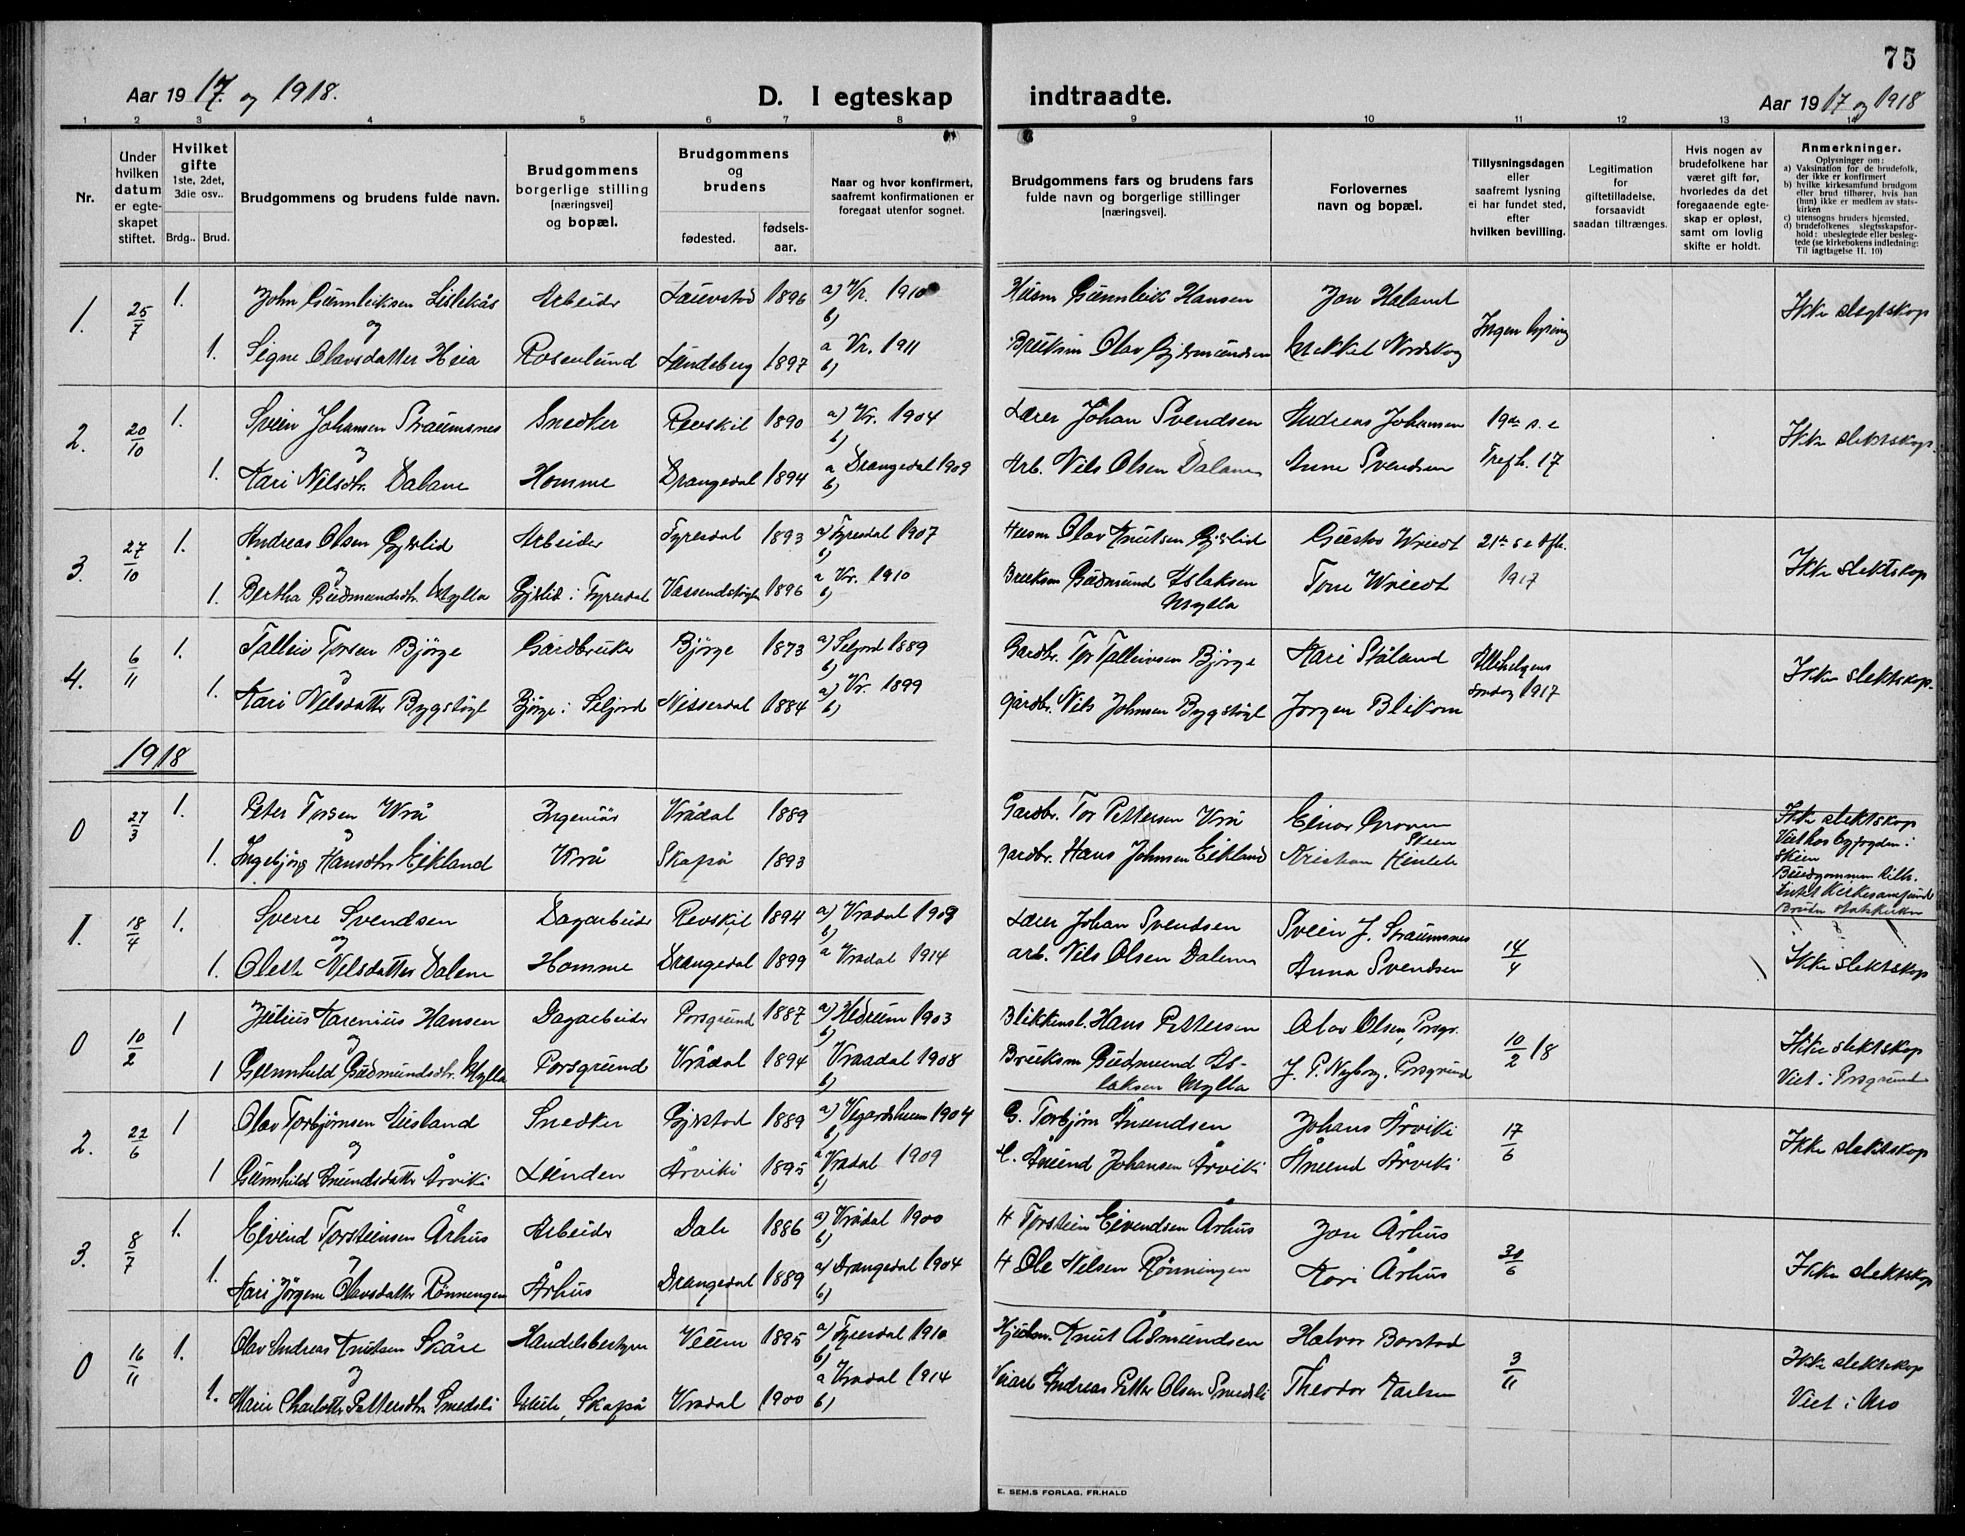 75
Aar 1917. og 1918.
D. I egteskap indtraadte.
Aar 1917 og 1918
1 2 3 4 5 6 7 8 9 10 11 12 13 14
Nr.
Under hvilken datum er egteskapet stiftet.
Hvilket gifte 1ste, 2det, 3die osv..
Brdg.. Brud.
Brudgommens og brudens fulde navn.
Brudgommens borgerlige stilling [næringsvei] og bopæl.
Brudgommens og brudens
fødested. fødselsaar.
Naar og hvor konfirmert, saafremt konfirmationen er foregaat utenfor sognet.
Brudgommens fars og brudens fars fulde navn og borgerlige stillinger [næringsvei].
Forlovernes navn og bopæl.
Tillysningsdagen eller saafremt lysning ei har fundet sted, efter hvilken bevilling.
Legitimation for giftetilladelse, forsaavidt saadan tiltrænges.
Hvis nogen av brudefolkene har været gift før, hvorledes da det foregaaende egteskap er opløst, samt om lovlig skifte er holdt.
Anmerkninger.
Oplysninger om:
a) Vaksination for de brudefolk, der ikke er konfirmert
b) hvilke kirkesamfund brudgom eller brud tilhører, hvis han (hun) ikke er medlem av statskirken
c) utensogns bruders hjemsted.
d) brudefolkenes slegtsskapsforhold: ubeslegtede eller beslegtede (se kirkebokens indledning: Til iagttagelse II. 10)
1. 25/7 1. John Gunnleiksen Lislekås Arbeider Lauvstad 1896 a) Vr. 1910 Husm Gunnleik Hansen Jon Haland Ingen lysning Ikke slegtskap
og b)
1. Signe Olavsdatter Heia Rosenlund Lundeberg 1897 a Vr. 1911 Bruksm Olav Gjermundsen Nordskog
b)
2. 20/10 1. Svein Johansen Straumsnes Snedker Revskil 1890 a) Vr. 1904 Lærer Johan Svendsen Andreas Johansen 19de s. e Ikke slektskap.
og b)
1. Kari Nilsdtr. Dalane Homme Drangedal 1894 a Drangedal 1909 Arb. Nils Olsen Dalane Anne Svendsen Trefh. 17
b)
3. 27/10 1. Andreas Olsen Gjerlid Arbeider Fyresdal 1893 a) Fyresdal 1907 Husm Olav Knutsen Gjerlid Gustav Wriedt 21de s e tfh. Ikke slektskap
og b)
1. Bertha Gudmundsdtr. Mylla Gjerlid i Fyresdal 1896 a Vr. 1910 Bruksm Gudmund Aslaksen Tone Wriedt 1917
b) Mylla
4. 6/11 1. Talleiv Torsen Bjørge Gardbruker Bjørge 1873 a) Seljord 1889 Gardbr. Tor Talleivsen Bjørge Kari Ståland Allehelgens Ikke slektskap.
og b)
1. Kari Nilsdatter Bygstøyl Bjørge i Seljord Nisserdal 1884 a) Vr. 1899 gardbr. Nils Johnsen Bygstøyl Jørgen Blikom søndag 1917
b)
1918
0 27/3 1. Peter Torsen Vrå Ingeniør Vrådal 1889 Gardbr. Tor Pettersen Vrå Einar Groven Ikke slektskap
og Skien Viet hos byfogden i
1. Ingebjørg Hansdtr. Eikland Vrå Skafså 1893 gardbr. Hans Johnsen Eikland Kristian Skien
Brudgommen tilh.
intet kirkesamfund
Bruden statskirken
1. 18/4 1. Sverre Svendsen Dagarbeider Revskil 1894 a) Vradal 1909 Lærer Johan Svendsen Svein J. Straumsnes 14/4 Ikke slektskap
og b)
1. Olette Nilsdatter Dalene Homme Drangedal 1899 a Vradal 1914 arb. Nils Olsen Dalene Anna Svendsen
0 10/2 1 Julius Karenius Hansen Dagarbeider Porsgrund 1887 a) Hedrum 1903 Blikkensl. Hans Pettersen Olav Olsen, Porsgr. 10/2 18 Ikke slektskap
og b)
1 Gunnhild Gudmundsdtr. Mylla Porsgrund Vrådal 1894 Vraadal 1908 Bruksm Gudmund As- J. P. Nyborg. Porsgrund Viet i Porsgrund
b) laksen Mylla
2. 22/6 1 Olav Torbjørnsen Husland Snedker Gjerstad 1889 a) Vegardsheim 1904 G. Torbjørn Anundsen Johans Årviki 17/6 Ikke slektskap
og b)
1 Gunnhild Anundsdatter Årviki Lunden Årviki 1895 a Vradal 1909 H. Ånund Johansen Årviki Ånund Årviki
b)
3. 8/7 1. Eivind Torsteinsen Århus Arbeider Dale 1886 a) Vrådal 1900 H Torstein Eivendsen Århus Jon Århus 30/6 Ikke slektskap
og b)
1. Kari Jørgene Olavsdatter Rønningen Århus Drangedal 1889 a) Drangedal 1904 H Ole Nilsen Rønningen Kari Århus
b)
0 16/11 1. Olav Andreas Knutsen Skåre Handelsbestyrer Veum 1895 a) Fyresdal 1910 Knut Åsmundsen Halvor Borstad 3/11 Ikke slektskap
og b)
1. Marie Charlotte Pettersdtr. Smedsli Skafså Vradal 1900 a Vradal 1914 Andreas Petter Olsen Smedsli Theodor Karlsen Viet i Mo
b)
E. SEM.S FORLAG, FR.HALD